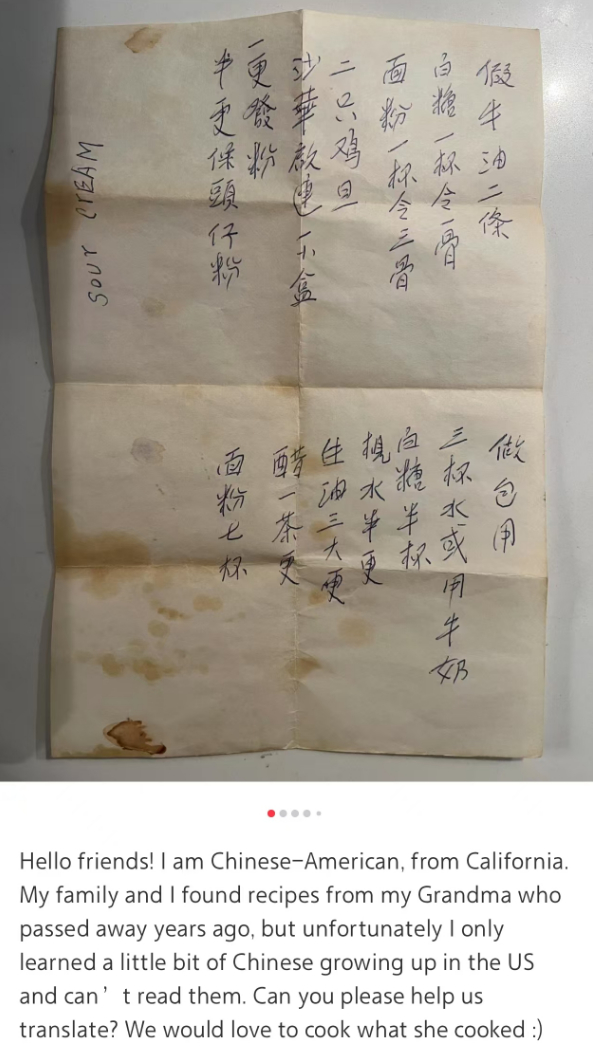 假牛油二條
白糖一杯令一骨
面粉一杯令三骨
二只鸡旦
沙華啟連一小盒
一更發粉
半更保頭仔粉
sour CREAM
做包用
三杯水或用牛奶
白糖半杯
梘水半更
生油三大更
醋一茶更
面粉七杯
Hello friends! I am Chinese-American, from California.
My family and I found recipes from my Grandma who
passed away years ago, but unfortunately I only
learned a little bit of Chinese growing up in the US
and can’t read them. Can you please help us
translate? We would love to cook what she cooked :)